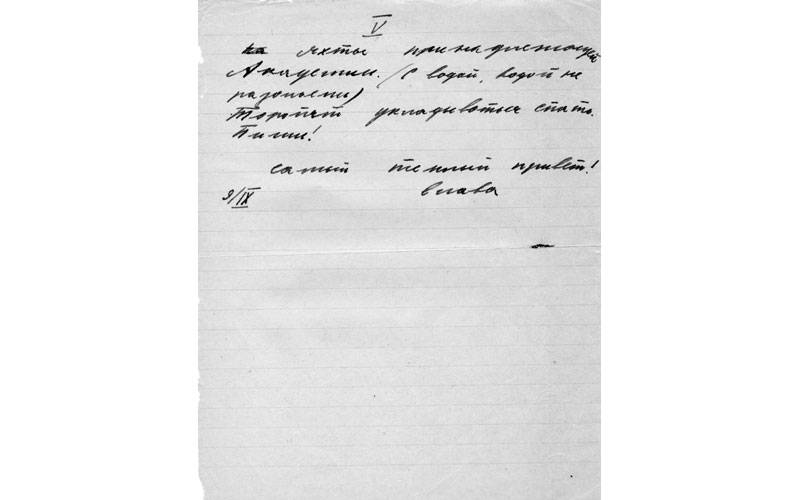 V
на яхты принадлежащей
Академии. (С водой, водой не
разольешь)
Торопят укладываться спать.
Пиши!
самый теплый привет!
9/IX Слава